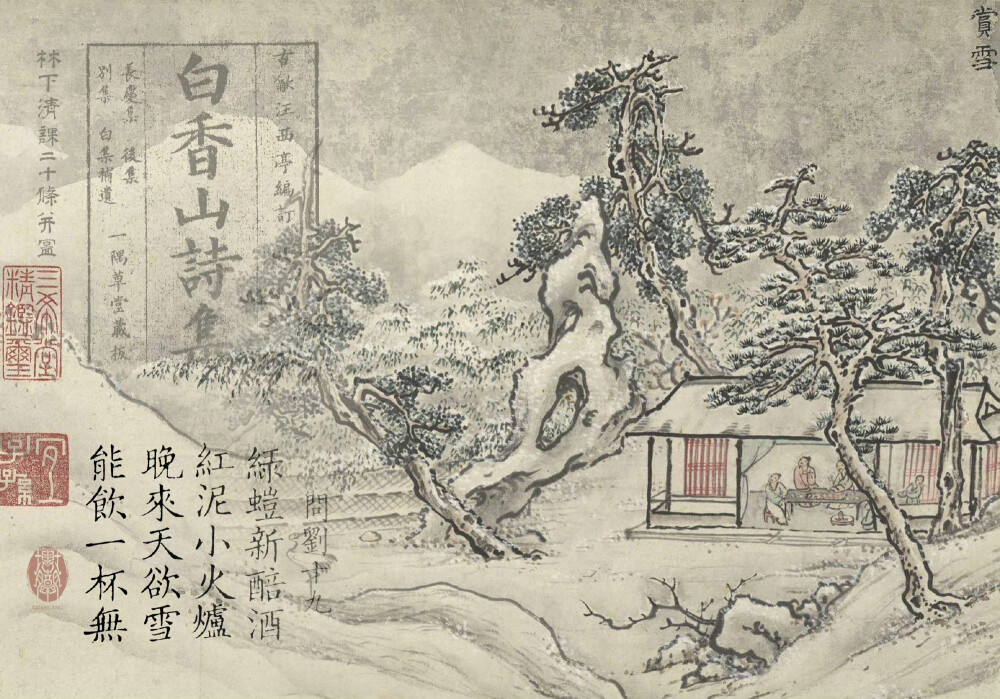 賞雪
古歙汪西亭編訂
白香山詩集
長慶集　後集
別集　白集補遺
一隅草堂藏板
林下清課二十條并圖
三希堂
精鑑璽
宜
子孫
問劉十九
綠螘新醅酒
紅泥小火爐
晚來天欲雪
能飲一杯無